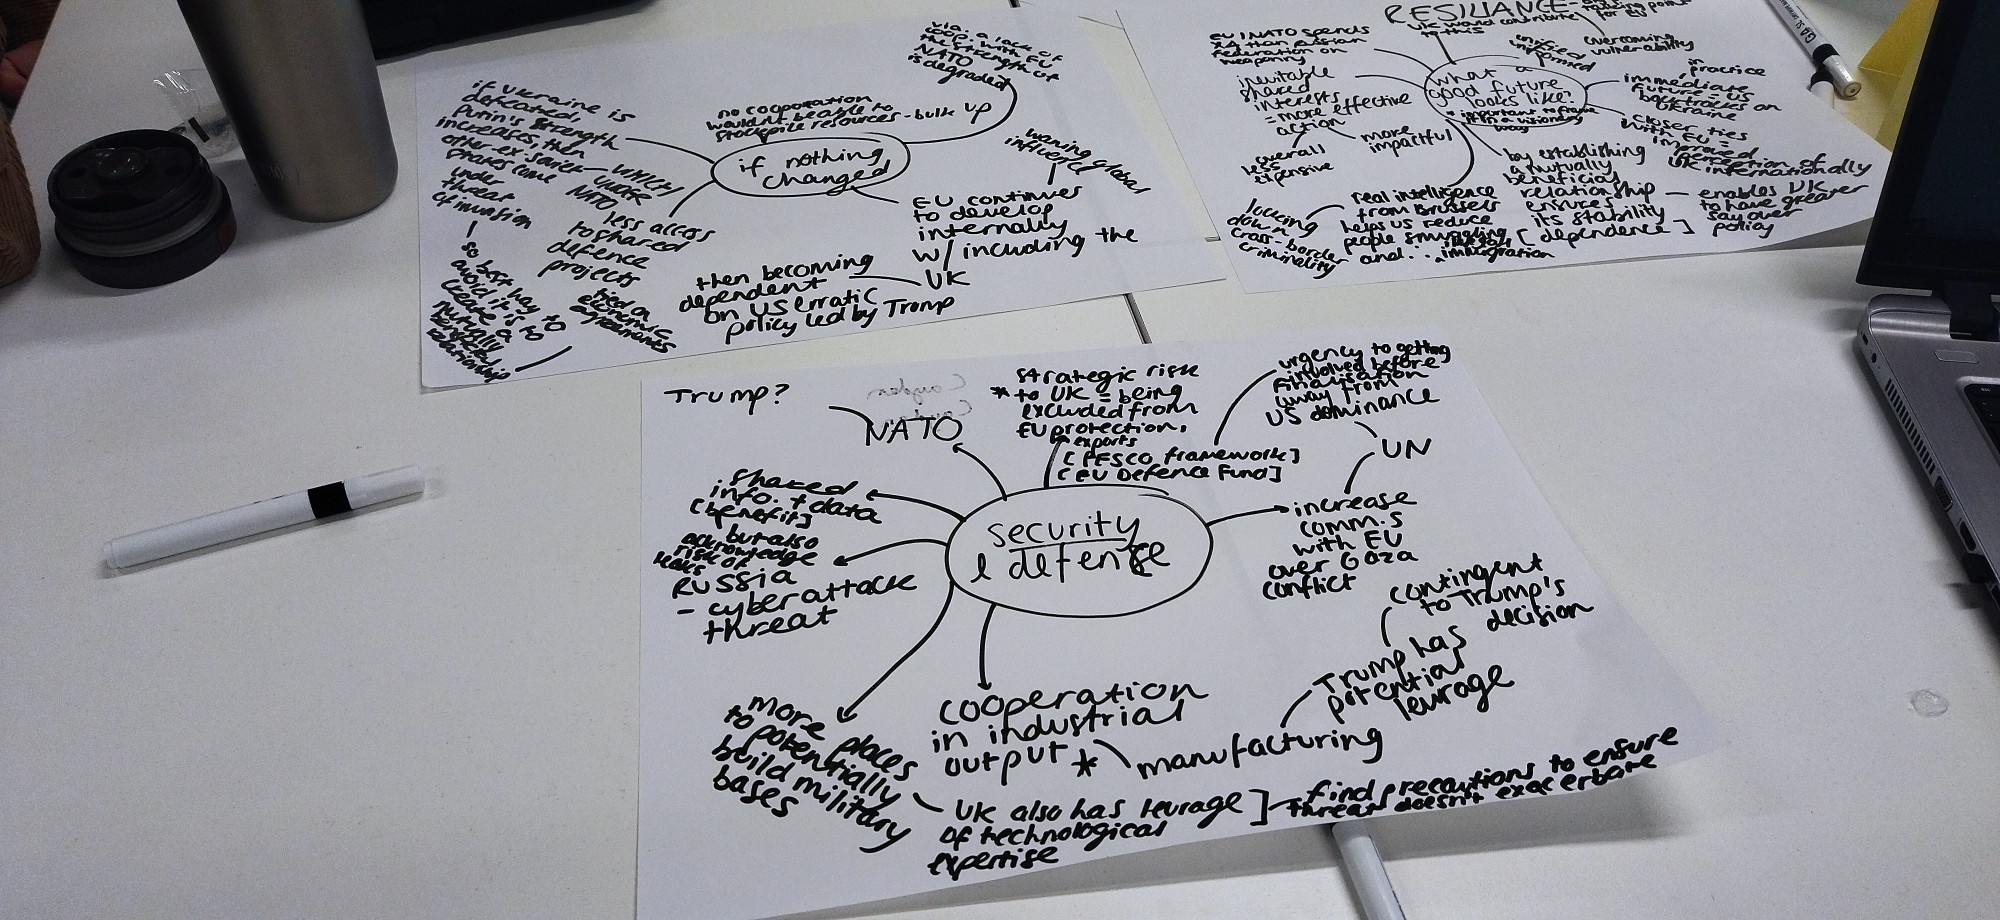 via a lack of
coop. with EU
the strength of
NATO
is degraded
no cooperation
wouldn't be able to
stockpile resources - bulk up
if nothing
changed
if Ukraine is
defeated,
Putin's strength
increases, then
other ex-soviet
states come
under
threat
of invasion
WHICH
under
NATO
so best way to
avoid it is to
create a
mutually
relationship
less access
to shared
defence
projects
tied on
economic
agreements
waning global
influence
EU continues
to develop
internally
w/ including the
UK
then becoming
dependent
on US erratic
policy led by Trump
RESILIANCE -
UK would contribute
to this
talking point
for EU
EU/NATO spends
x4 than Russian
Federation on
weaponry
inevitable
shared
interests
= more effective
action
more
impactful
overall
less
expensive
what a
good future
looks like?
* important to frame
it in a visionary
way
unified
informed
overcoming
vulnerability
in
practice
immediate
future = US
backtracks on
Ukraine
closer ties
with EU =
improved
perception of
UK internationally
by establishing
a mutually
beneficial
relationship
ensures
its stability
[dependence]
enables UK
to have greater
say over
policy
real intelligence
from Brussels
helps us reduce
people smuggling
and...
immigration
locking
down
cross-border
criminality
Trump?
NATO
strategic risk
* to UK = being
excluded from
EU protection,
exports
[PESCO framework]
[EU Defence Fund]
urgency to getting
involved before
finalisation
away from
US dominance
UN
increase
comm.s
with EU
over Gaza
conflict
shared
info. + data
[benefit]
but also
acknowledge
risk of
leaks
RUSSIA
- cyber attack
threat
security
& defense
contingent
to Trump's
decision
Trump has
potential
leverage
cooperation
in industrial
output *
manufacturing
more places
to potentially
build military
bases
UK also has leverage]
of technological
expertise
find precautions to ensure
threat doesn't exacerbate